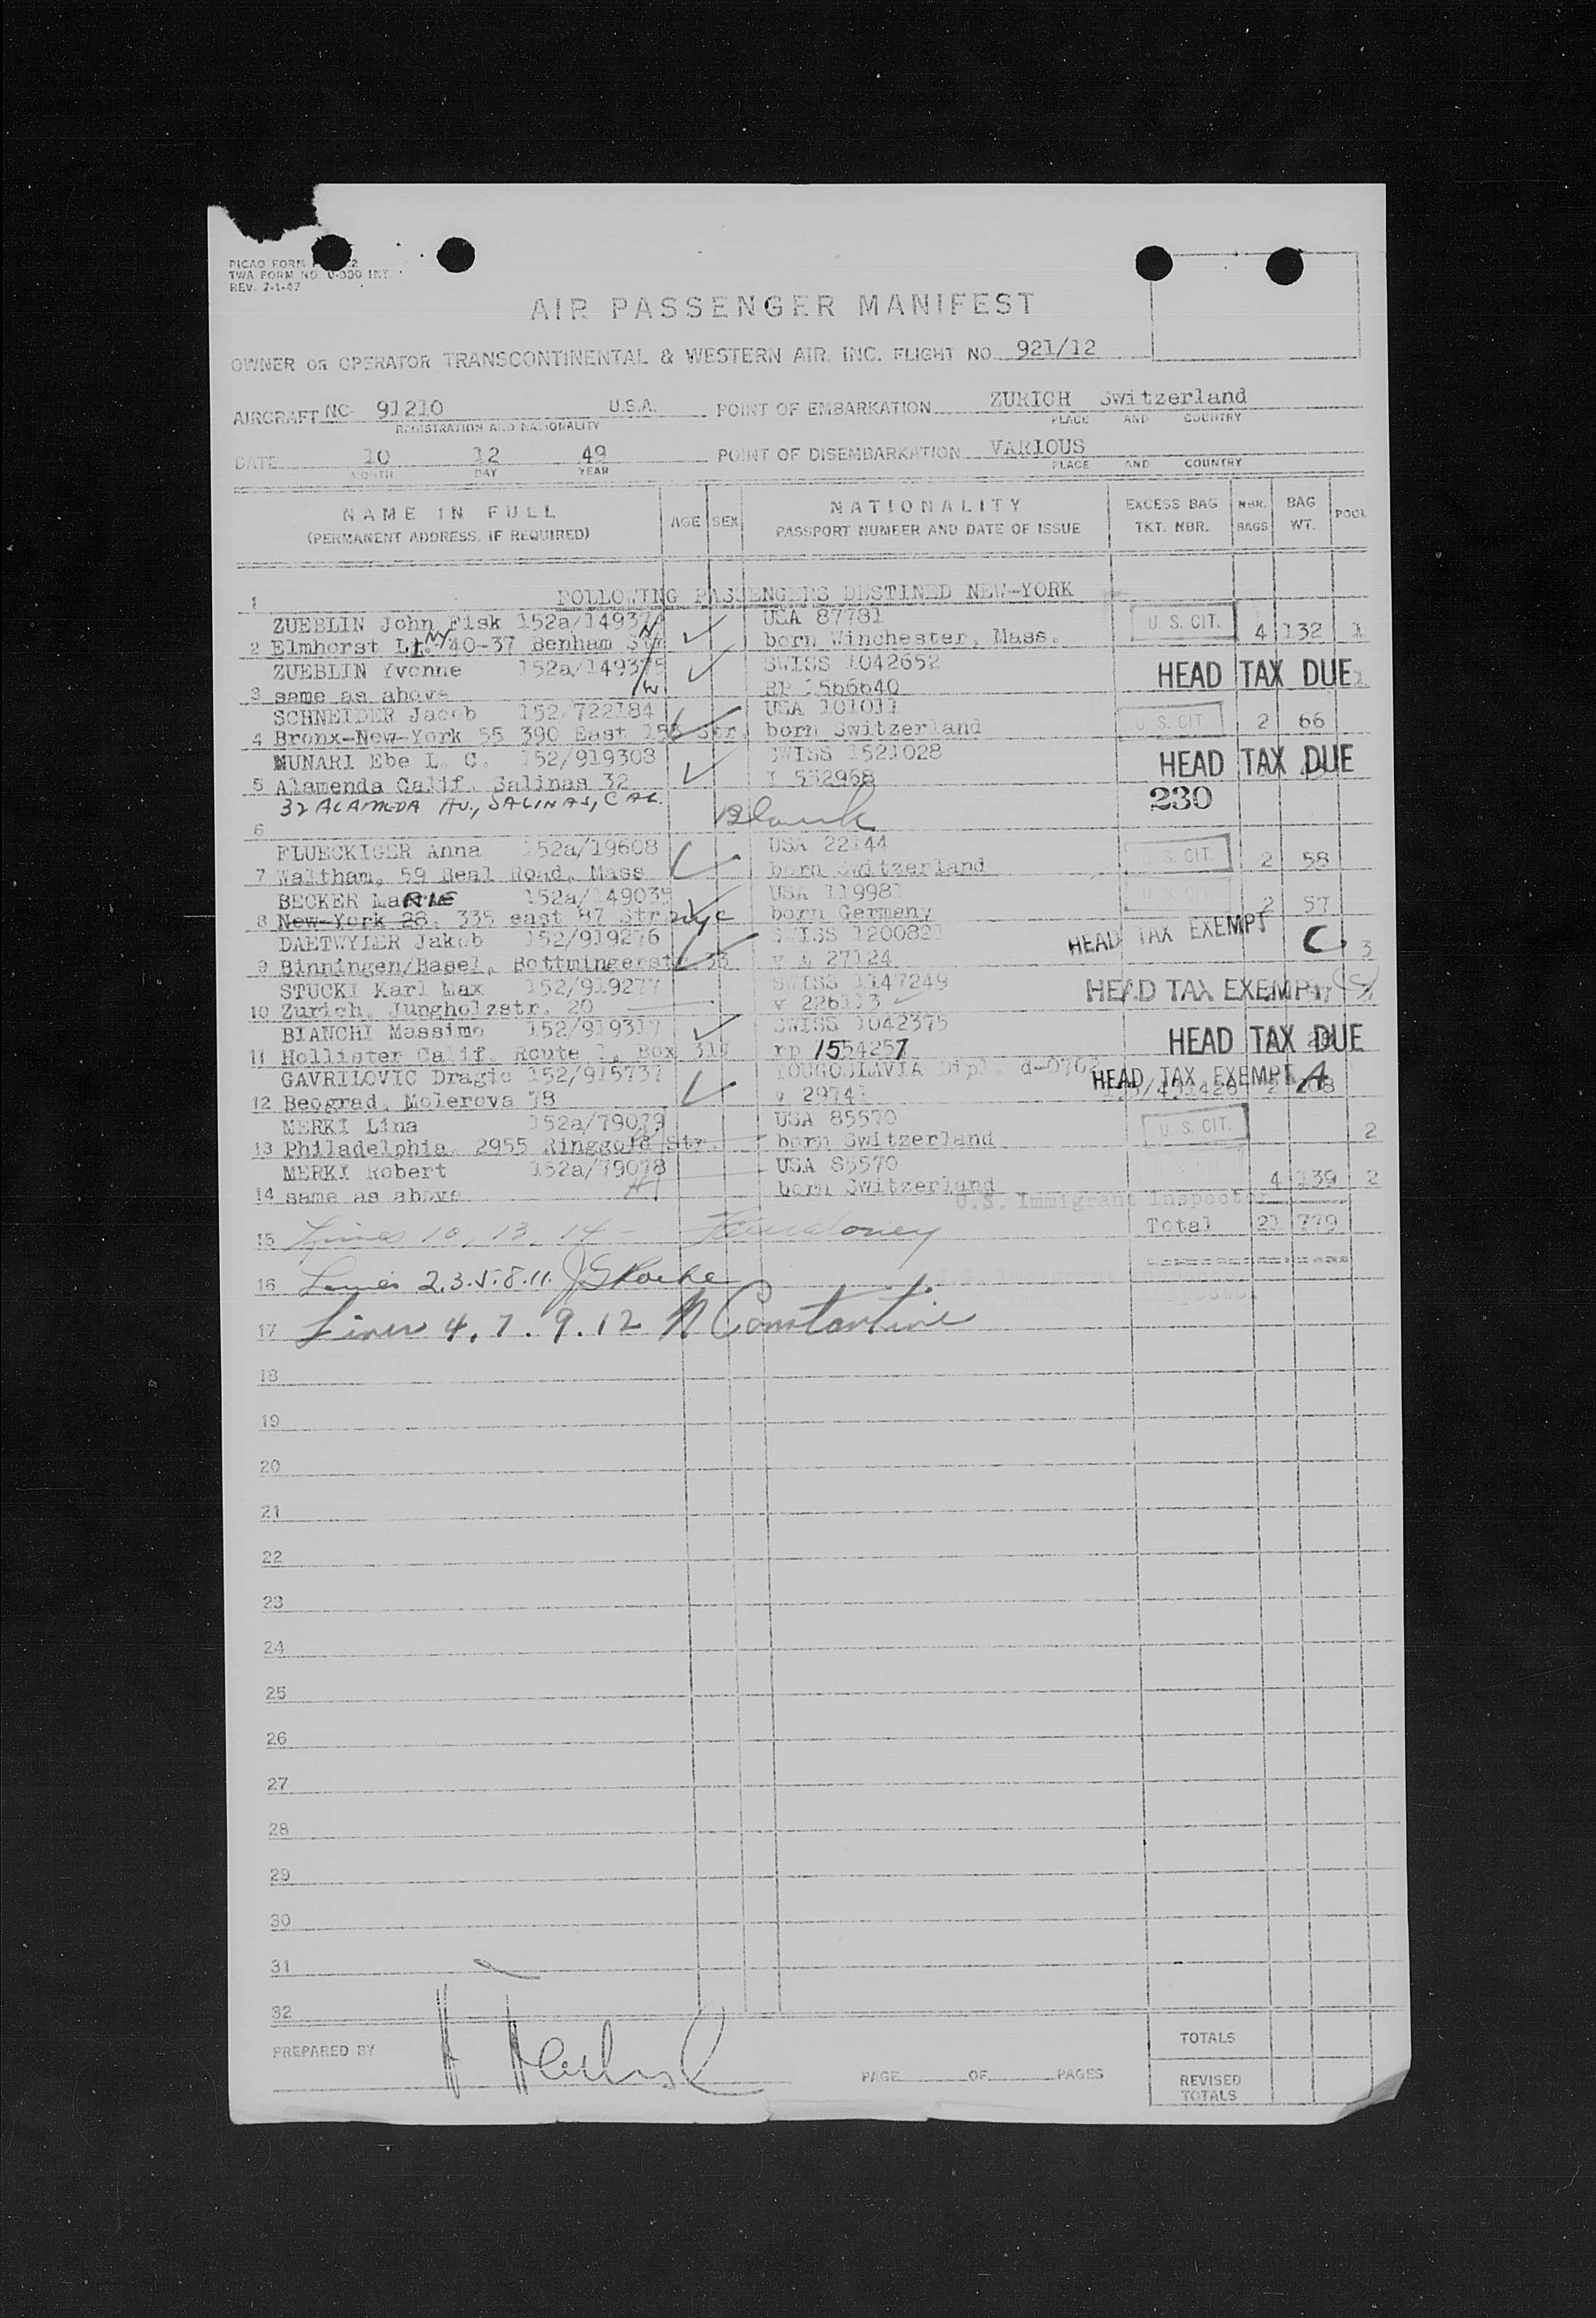 PICAO FORM
TWA FORM NO. INT.
REV. 7-1-47
AIR PASSENGER MANIFEST
OWNER OR OPERATOR TRANSCONTINENTAL & WESTERN AIR, INC. FLIGHT NO. 921/12
AIRCRAFT NC- 91210 U.S.A. POINT OF EMBARKATION ZURICH Switzerland
REGISTRATION AND NATIONALITY PLACE AND COUNTRY
DATE 10 12 49 POINT OF DISEMBARKATION VARIOUS
MONTH DAY YEAR PLACE AND COUNTRY
NAME IN FULL AGE SEX NATIONALITY EXCESS BAG NBR. BAG POOL
(PERMANENT ADDRESS, IF REQUIRED) PASSPORT NUMBER AND DATE OF ISSUE TKT. NBR. BAGS WT.
1 FOLLOWING PASSENGERS DESTINED NEW-YORK
ZUEBLIN John Fisk 152a/149374 USA 87781 U. S. CIT.
2 Elmhorst L.I. NY 40-37 Benham Str born Winchester, Mass. 4 132 1
ZUEBLIN Yvonne 152a/149375 SWISS 1042652 HEAD TAX DUE
3 same as above RP 1566640 1
SCHNEIDER Jacob 152/722184 USA 101011 U. S. CIT. 2 66
4 Bronx-New-York 55 390 East 153 Str. born Switzerland
MUNARI Ebe L. C. 152/919308 SWISS 1521028 HEAD TAX DUE
5 Alamenda Calif. Salinas 32 I 532968
32 ALAMEDA AV., SALINAS, CAL. 230
6 Blank
FLUECKIGER Anna 152a/19608 USA 22144 U. S. CIT. 2 58
7 Waltham, 59 Beal Road, Mass born Switzerland
BECKER MaRIE 152a/149035 USA 119981 U. S. CIT.
8 New-York 28, 335 east 87 Str nyc born Germany 2 57
DAETWYLER Jakob 152/919276 SWISS 1200821 HEAD TAX EXEMPT C 3
9 Binningen/Basel, Bottmingerstr. 33 v 27124
STUCKI Karl Max 152/919277 SWISS 1147249 HEAD TAX EXEMPT
10 Zurich, Jungholzstr. 20 v 226113
BIANCHI Massimo 152/919317 SWISS 1042375 HEAD TAX DUE
11 Hollister Calif. Route 1, Box 317 rp 1554257
GAVRILOVIC Dragic 152/915737 YOUGOSLAVIA Dipl. d-0762 HEAD TAX EXEMPT A
12 Beograd, Molerova 78 v 29741 2
MERKI Lina 152a/79079 USA 85570 U. S. CIT.
13 Philadelphia, 2955 Ringgold Str. born Switzerland 2
MERKI Robert 152a/79078 USA 85570
14 same as above born Switzerland 4 139 2
U.S. Immigrant Inspector
15 Lines 10, 13, 14 - Total 21 779
16 Lines 2.3.5.8.11.
17 Lines 4. 7. 9. 12 N Constantine
18
19
20
21
22
23
24
25
26
27
28
29
30
31
32
PREPARED BY PAGE OF PAGES TOTALS
REVISED TOTALS